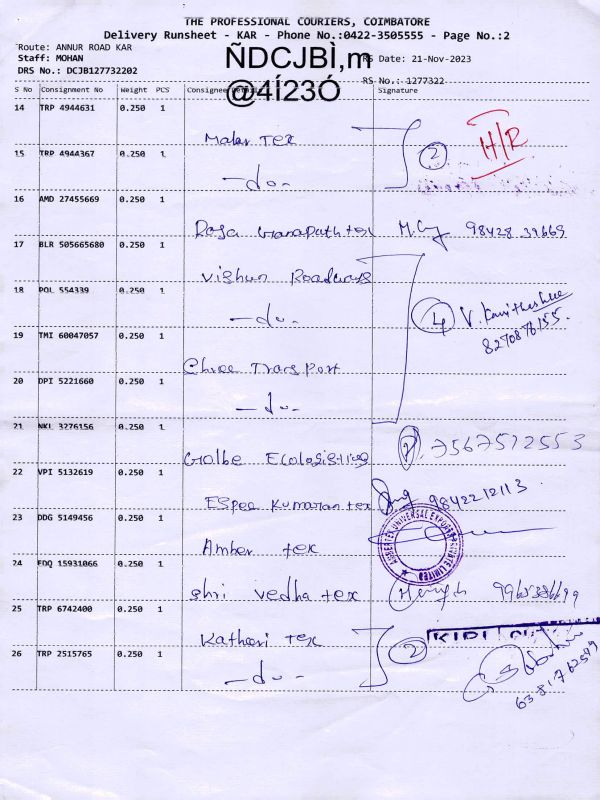 THE PROFESSIONAL COURIERS, COIMBATORE
Delivery Runsheet - KAR - Phone No.:0422-3505555 - Page No.:2
Route: ANNUR ROAD KAR
ÑDCJBÌ,m
Staff: MOHAN
RS Date: 21-Nov-2023
DRS No.: DCJB127732202
@4Í23Ó
RS No.: 1277322
S No Consignment No Weight PCS Consignee Details Signature
14 TRP 4944631 0.250 1
Malar Tex
2 H/R
15 TRP 4944367 0.250 1
-do-
16 AMD 27455669 0.250 1
Raja Ganapathi tex
17 BLR 505665680 0.250 1
Vishnu Roadways
18 POL 554339 0.250 1
-do-
4 V.
8270876155.
19 TMI 60047057 0.250 1
Shree Transport
20 DPI 5221660 0.250 1
-do-
21 NKL 3276156 0.250 1
Ecologistics
7567512553
22 VPI 5132619 0.250 1
Espee Kumaran tex
9842212113.
23 DDG 5149456 0.250 1
Amber tex
UNIVERSAL EXPORTS PRIVATE LIMITED
24 EDQ 15931066 0.250 1
Shri Vedha tex
25 TRP 6742400 0.250 1
Kathori tex
2
KIDI
26 TRP 2515765 0.250 1
-do-
6381762599